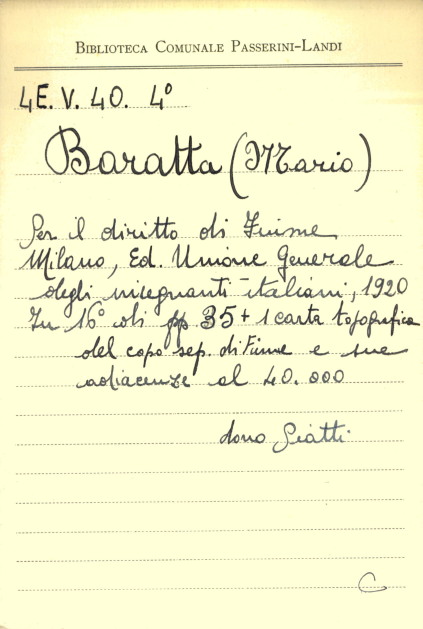 BIBLIOTECA COMUNALE PASSERINI-LANDI
4E. V. 40. 4°
Baratta (Mario)
Per il diritto di Fiume
Milano, Ed. Unione Generale
degli insegnanti italiani, 1920
In 16° di pp 35 + 1 carta topografica
del capo sep. di Fiume e sue
adiacenze al 40.000
dono Giatti
C